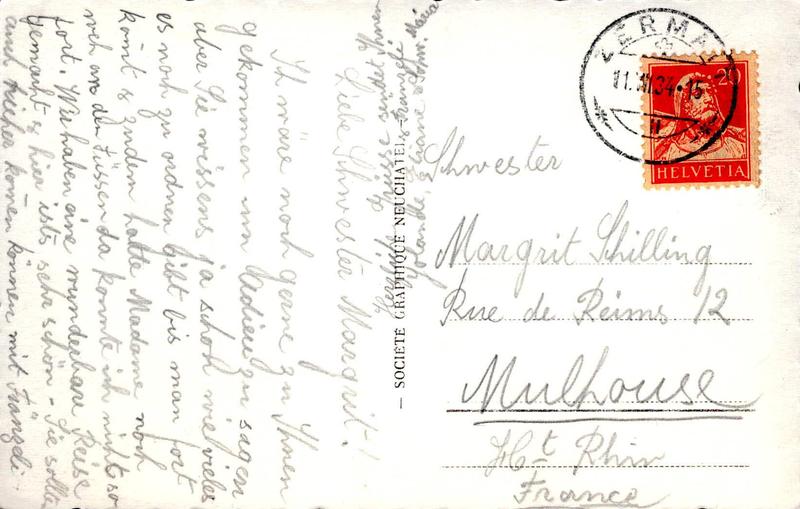 Liebe Schwester Margrit!
Ich wäre noch gerne zu Ihnen
gekommen um Adieu zu sagen
aber Sie wissens ja schon wie vieles
es noch zu ordnen gibt bis man fort
kömt & zudem hatte Madame noch
weh an den Füssen da konnte ich nicht so
fort. Wir haben eine wunderbare Reise
gemacht & hier ists sehr schön - Sie sollten
auch hieher kömen können mit
Herzliche Grüsse von der
Yolande, Liliane & Schw. Maria
SOCIÉTÉ GRAPHIQUE NEUCHATEL
ZERMATT
11. VII. 34 - 15
20
HELVETIA
Schwester
Margrit Schilling
Rue de Reims 12
Mulhouse
Ht Rhin
France